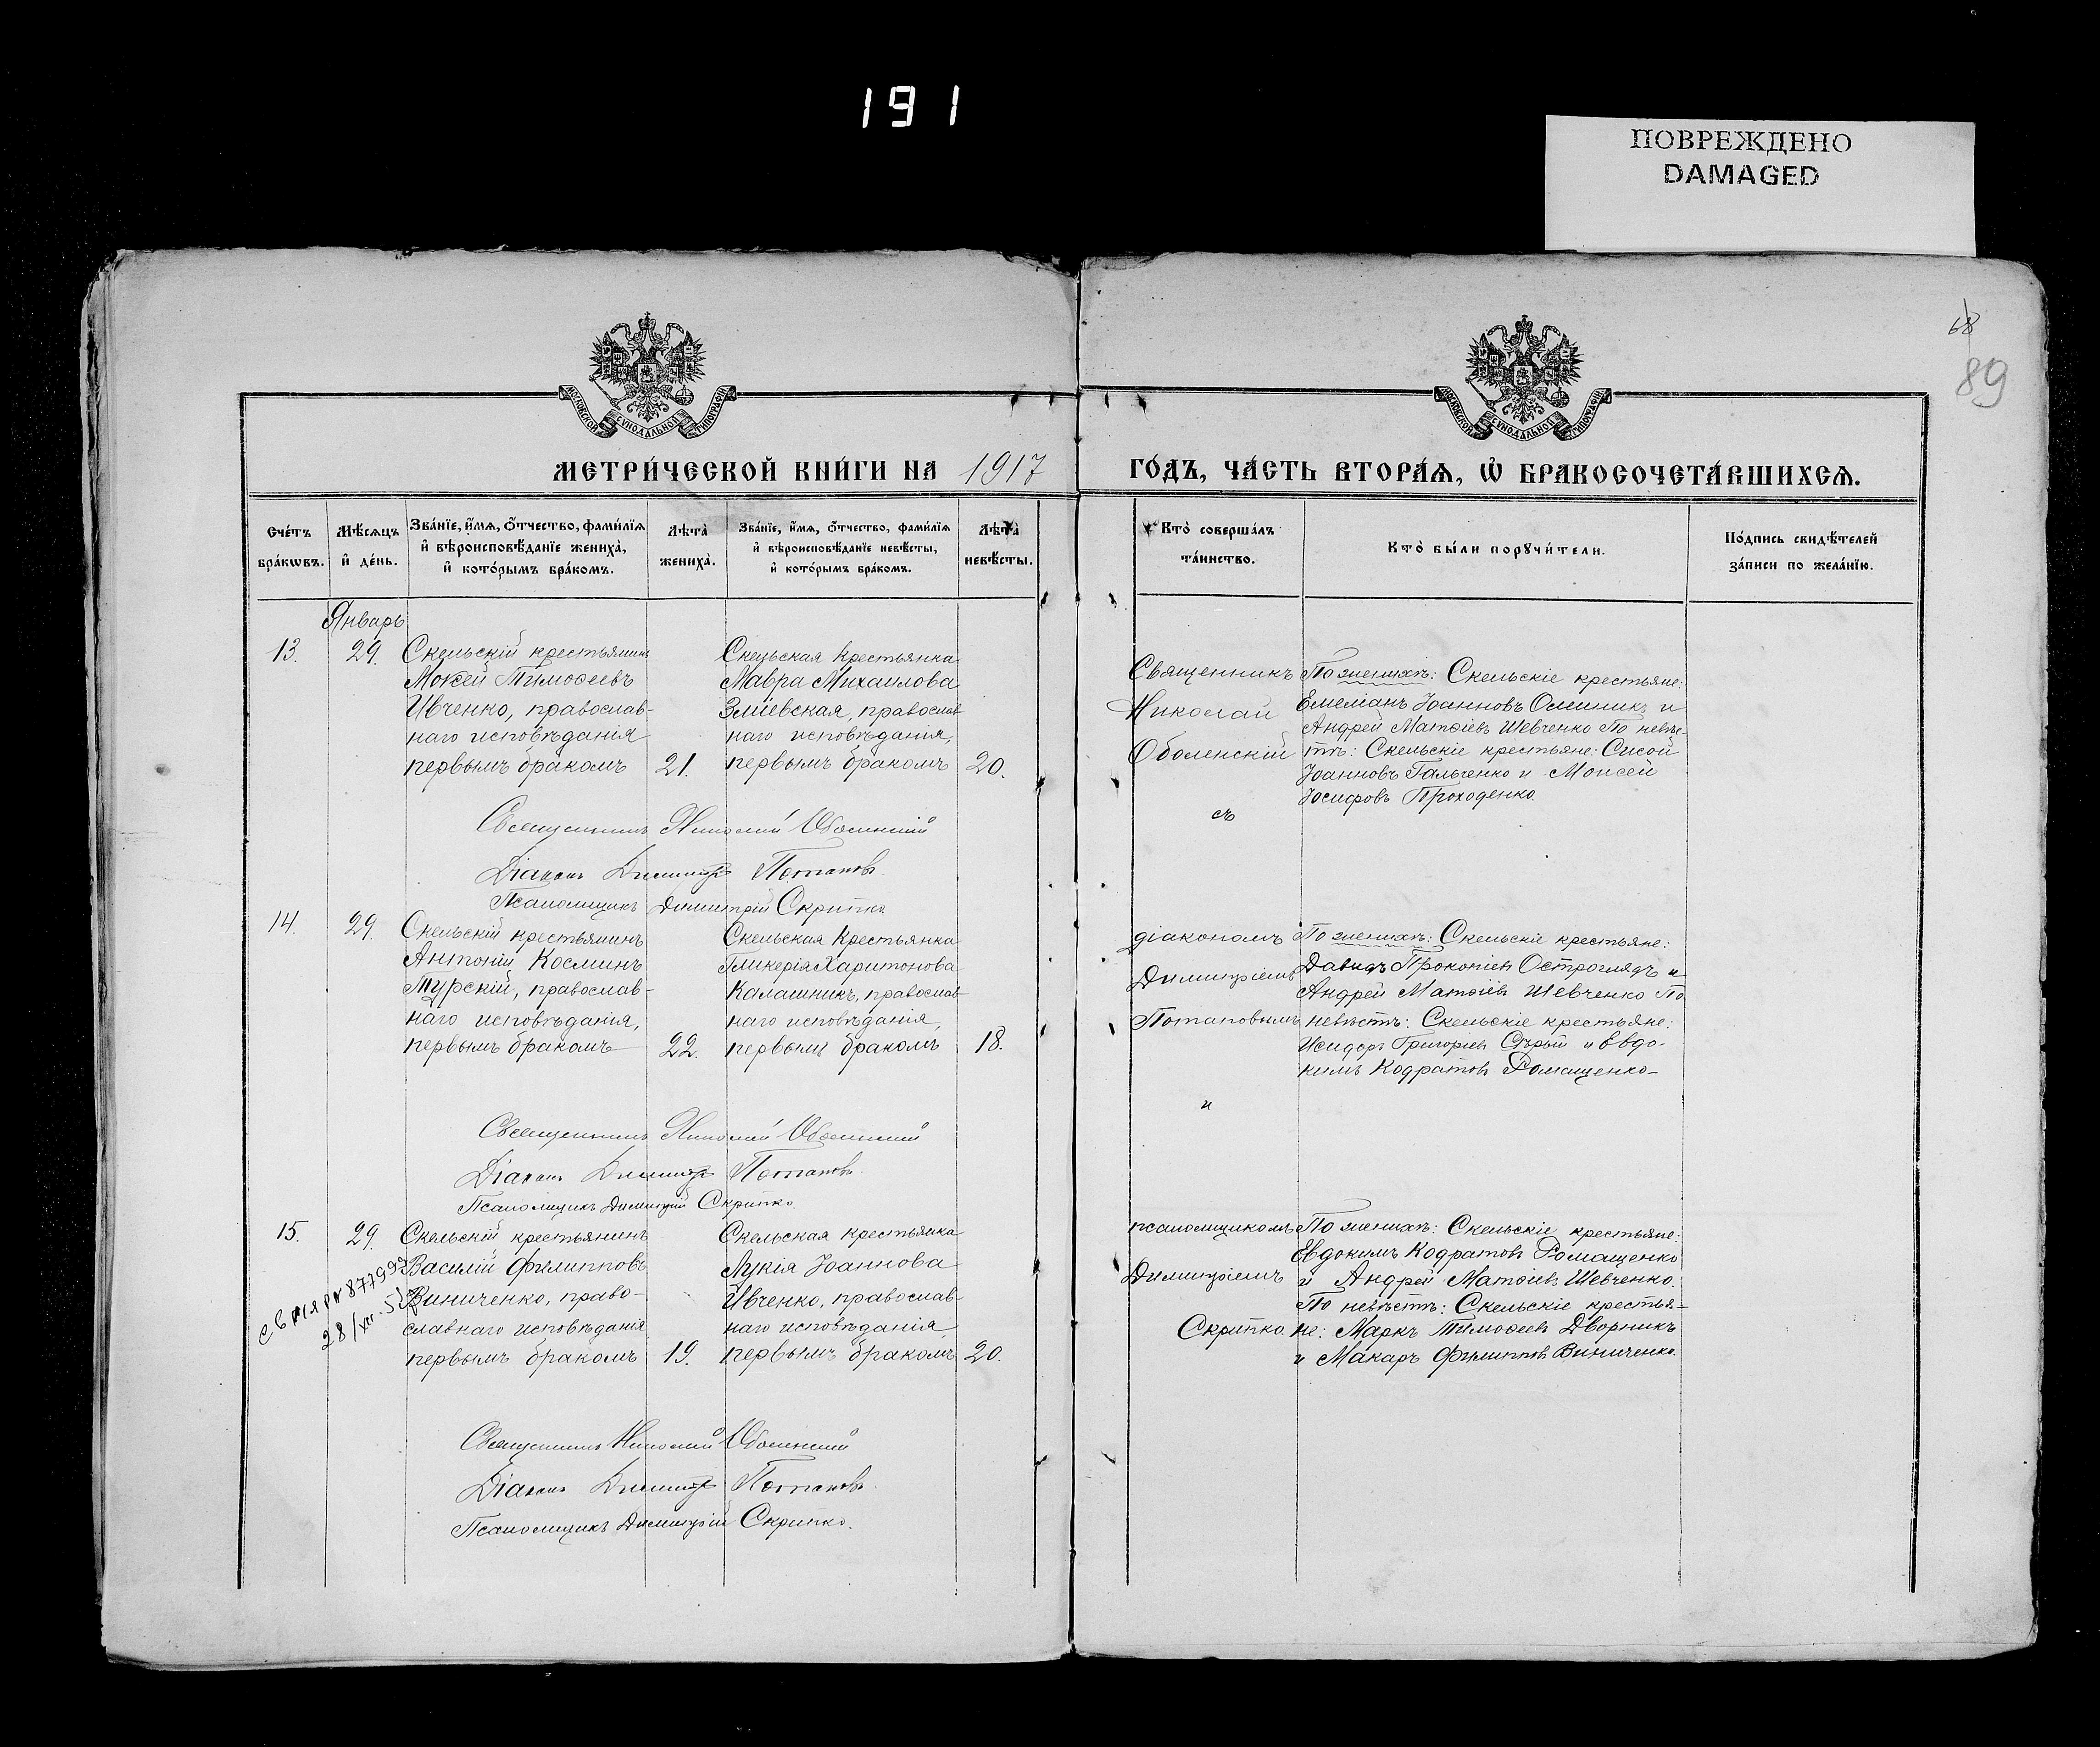 191
ПОВРЕЖДЕНО
DAMAGED
68
89
МОСКОВСКОЙ СѴНОДАЛЬНОЙ ТИПОГРАФІИ
МОСКОВСКОЙ СѴНОДАЛЬНОЙ ТИПОГРАФІИ
МЕТРИ́ЧЕСКОЙ КНИ́ГИ НА 1917
ГО́ДЪ, ЧА́СТЬ ВТОРА́Ѧ, Ѡ҆ БРАКОСОЧЕТА́ВШИХСѦ.
Сче́тъ бра́кѡвъ.
Мѣ́сѧцъ и҆ де́нь.
Зва́нїе, и҆́мѧ, ѻ҆́тчество, фами́лїѧ
и҆ вѣроисповѣ́данїе жениха̀,
и҆ кото́рымъ бра́комъ.
Лѣ́та̀ жениха̀.
Зва́нїе, и҆́мѧ, ѻ҆́тчество, фами́лїѧ
и҆ вѣроисповѣ́данїе невѣ́сты,
и҆ кото́рымъ бра́комъ.
Лѣ́та̀ невѣ́сты.
Кто̀ соверша́лъ
та́инство.
Кто̀ бы́ли порꙋчи́тели.
По́дпись свидѣ́телей
за́писи по жела́нїю.
Январь
13.
29.
Скельскій крестьянинъ
Мокей Тимоѳеевъ
Ивченко, православ-
наго исповѣданія
первымъ бракомъ
21.
Скельская Крестьянка
Мавра Михаилова
Зміевская, православ-
наго исповѣданія,
первымъ бракомъ
20.
Священникъ
Николай
Оболенскій
съ
По женихѣ: Скельскіе крестьяне:
Емеліанъ Іоанновъ Олейникъ и
Андрей Матѳіевъ Шевченко По невѣс-
тѣ: Скельскіе крестьяне: Сисой
Іоанновъ Гальченко и Моисей
Іосифовъ Проходенко.
Священникъ Николай Оболенскій
Діаконъ Димитрій Потаповъ.
Псаломщикъ Димитрій Скрипко.
14.
29.
Скельскій крестьянинъ
Антоній Косминъ
Турскій, православ-
наго исповѣданія,
первымъ бракомъ
22.
Скельская Крестьянка
Гликерія Харитонова
Калашникъ, православ-
наго исповѣданія,
первымъ бракомъ
18.
діакономъ
Димитріемъ
Потаповымъ
и
По женихѣ: Скельскіе крестьяне:
Давидъ Прокопіевъ Остроглядъ и
Андрей Матѳіевъ Шевченко По
невѣстѣ: Скельскіе крестьяне:
Исидоръ Григоріевъ Сѣрый и Евдо-
кимъ Кодратовъ Ромащенко
Священникъ Николай Оболенскій
Діаконъ Димитрій Потаповъ.
Псаломщикъ Димитрій Скрипко.
15.
29.
28/XII-
Скельскій крестьянинъ
Василій Филипповъ
Виниченко, право-
славнаго исповѣданія
первымъ бракомъ
19.
Скельская крестьянка
Лукія Іоаннова
Ивченко, православ-
наго исповѣданія
первымъ бракомъ
20.
псаломщикомъ
Димитріемъ
Скрипко.
По женихѣ: Скельскіе крестьяне:
Евдокимъ Кодратовъ Ромащенко
и Андрей Матѳіевъ Шевченко.
По невѣстѣ: Скельскіе крестья-
не: Маркъ Тимоѳеевъ Дворникъ
и Макаръ Филипповъ Виниченко.
Священникъ Николай Оболенскій
Діаконъ Димитрій Потаповъ.
Псаломщикъ Димитрій Скрипко.